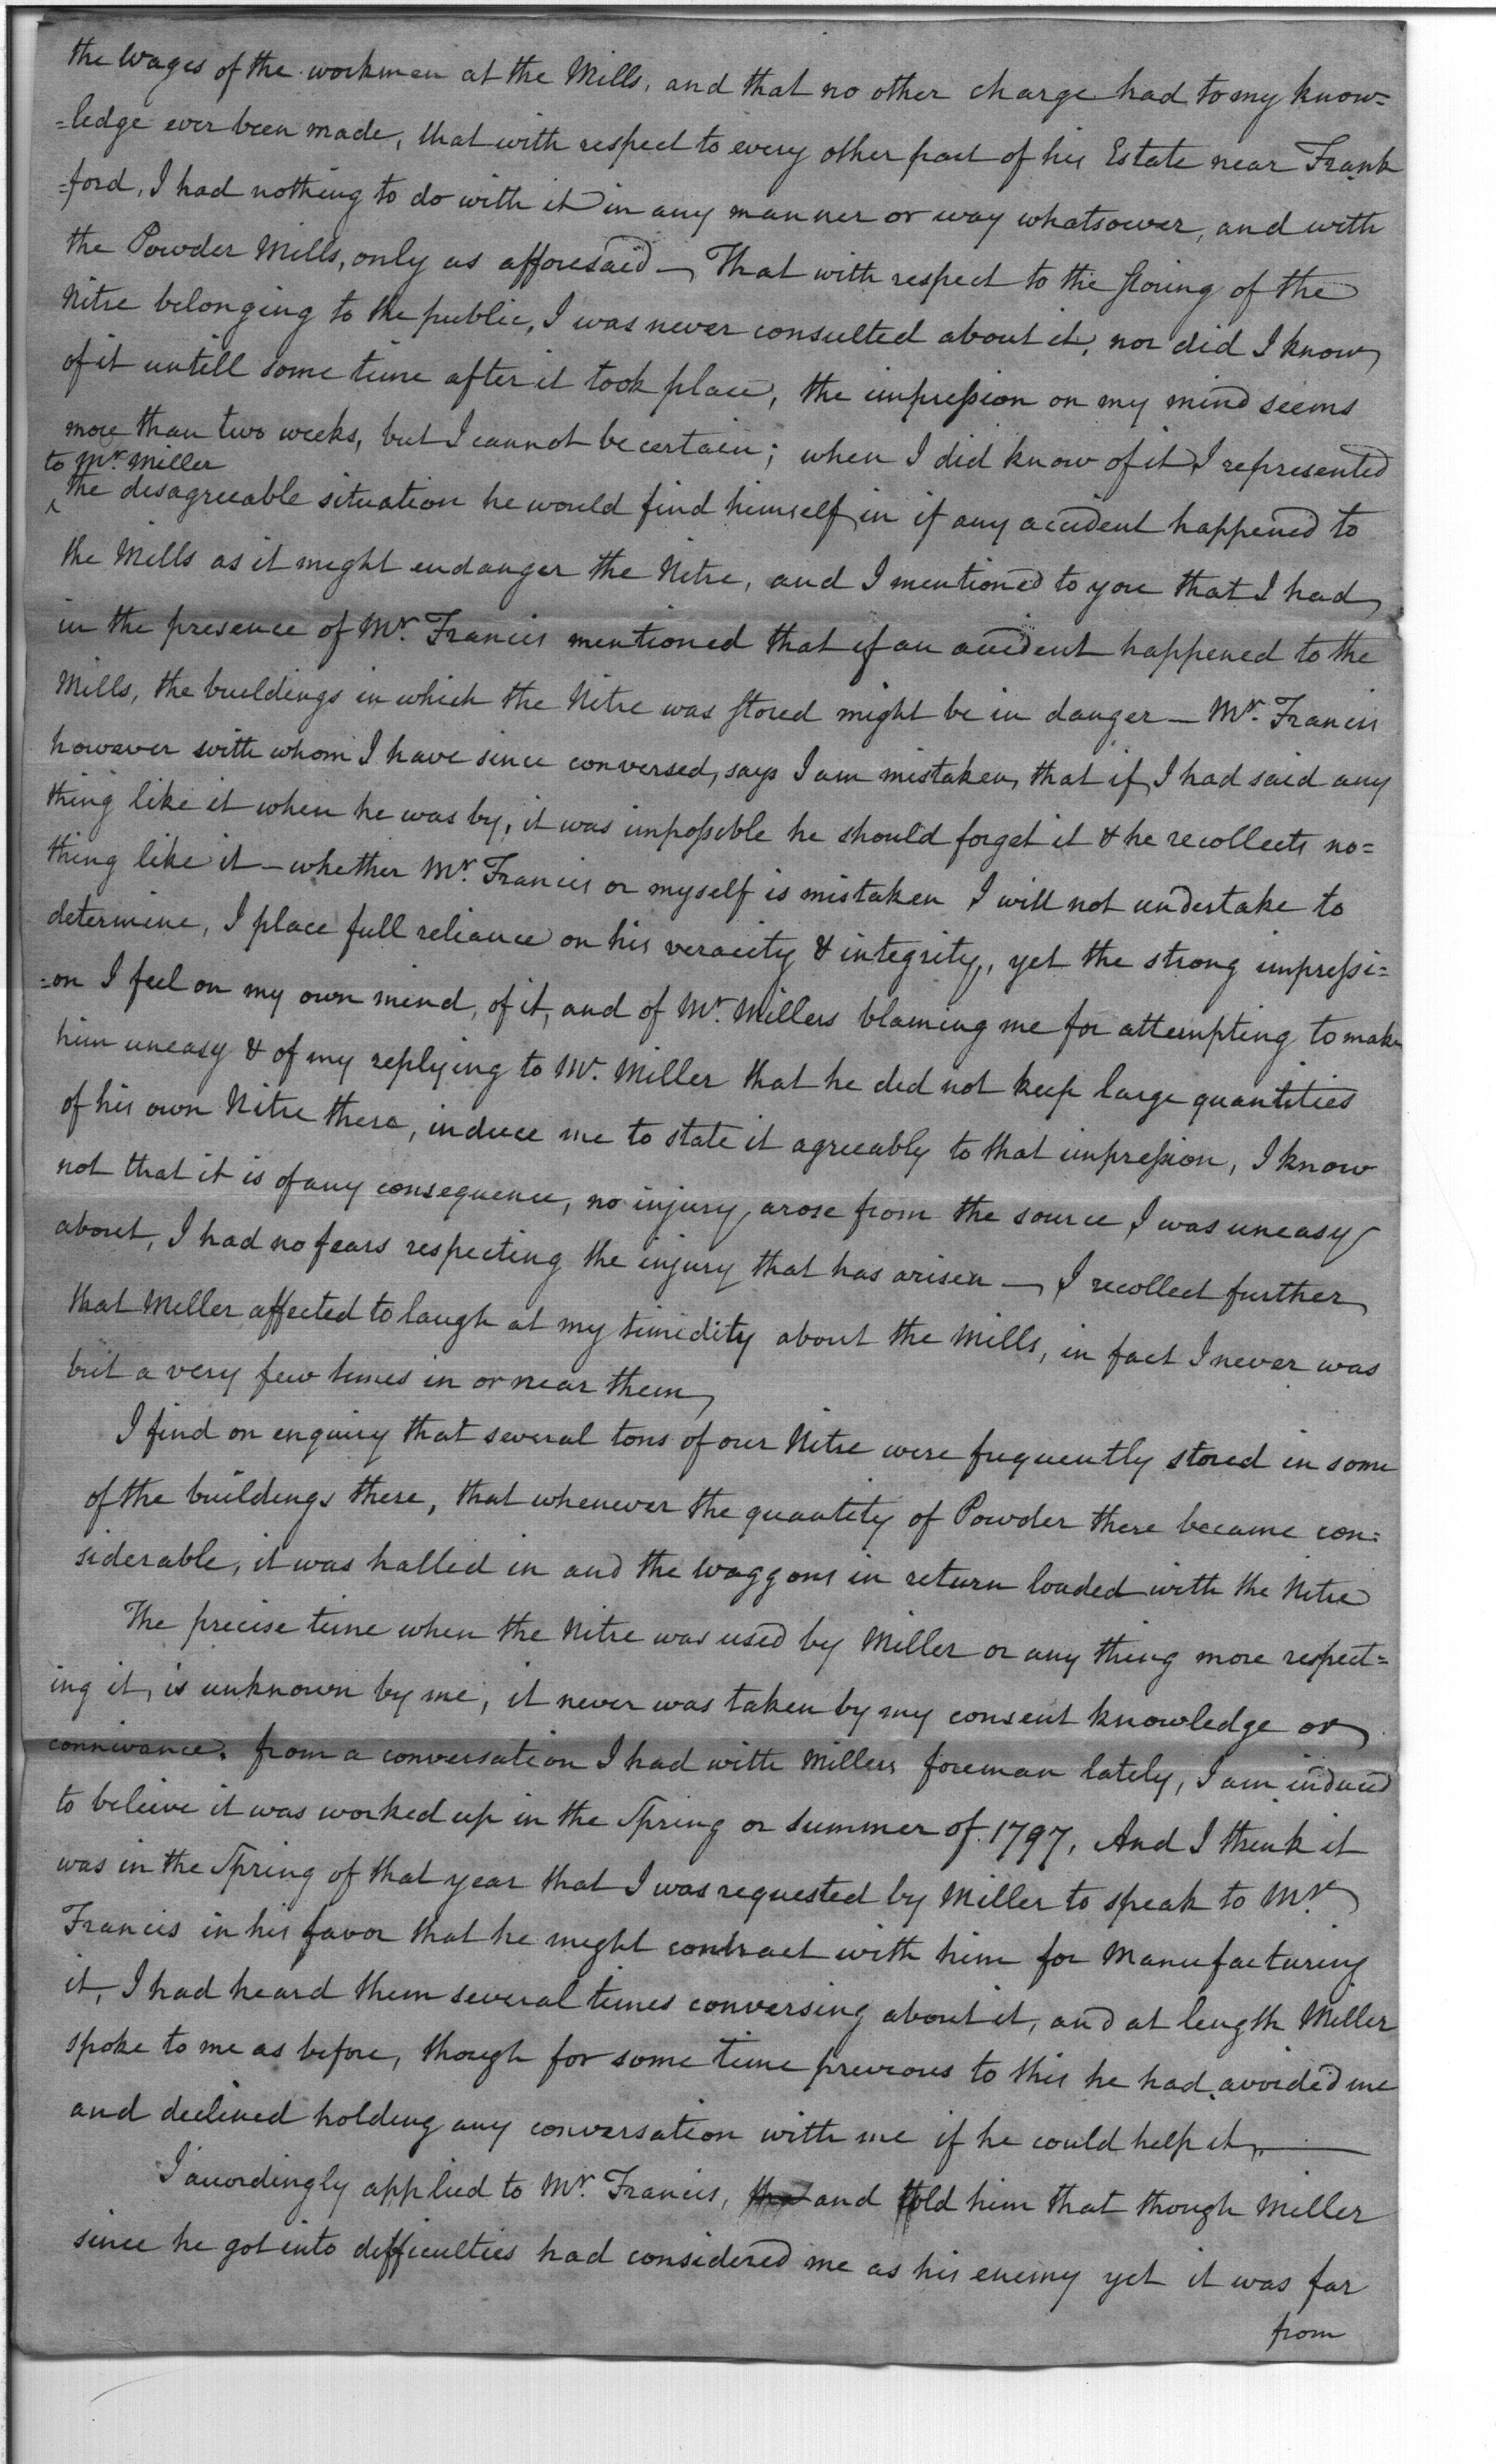 the Wages of the workmen at the Mills, and that no other charge had to my know=
=ledge ever been made, that with respect to every other part of his Estate near Frank
=ford, I had nothing to do with it in any manner or way whatsoever, and with
the Powder Mills, only as afforesaid — That with respect to the storing of the
Nitre belonging to the public, I was never consulted about it, nor did I know
of it untill some time after it took place, the impression on my mind seems
more than two weeks, but I cannot be certain; when I did know of it I represented
to Mr. Miller
^ the disagreeable situation he would find himself in if any accident happened to
the Mills as it might endanger the Nitre, and I mentioned to you that I had
in the presence of Mr. Francis mentioned that if an accident happened to the
Mills, the buildings in which the Nitre was stored might be in danger — Mr. Francis
however with whom I have since conversed, says I am mistaken, that if I had said any
thing like it when he was by, it was impossible he should forget it & he recollects no=
thing like it — whether Mr. Francis or myself is mistaken I will not undertake to
determine, I place full reliance on his veracity & integrity, yet the strong impressi=
=on I feel on my own mind, of it, and of Mr. Millers blaming me for attempting to make
him uneasy & of my replying to Mr. Miller that he did not keep large quantities
of his own Nitre there, induce me to state it agreeably to that impression, I know
not that it is of any consequence, no injury arose from the source I was uneasy
about, I had no fears respecting the injury that has arisen — I recollect further
that Miller affected to laugh at my timidity about the Mills, in fact I never was
but a very few times in or near them
I find on enquiry that several tons of our Nitre were frequently stored in some
of the buildings there, that whenever the quantity of Powder there became con=
siderable, it was halled in and the waggons in return loaded with the Nitre
The precise time when the Nitre was used by Miller or any thing more respect=
ing it, is unknown by me, it never was taken by my consent knowledge or
connivance. from a conversation I had with Millers foreman lately, I am induced
to beleive it was worked up in the Spring or Summer of 1797, And I think it
was in the Spring of that year that I was requested by Miller to speak to Mr.
Francis in his favor that he might contract with him for Manufacturing
it, I had heard them several times conversing about it, and at length Miller
spoke to me as before, though for some time previous to this he had avoided me
and declined holding any conversation with me if he could help it, —
I accordingly applied to Mr. Francis, tha and told him that though Miller
since he got into difficulties had considered me as his enemy yet it was far
from